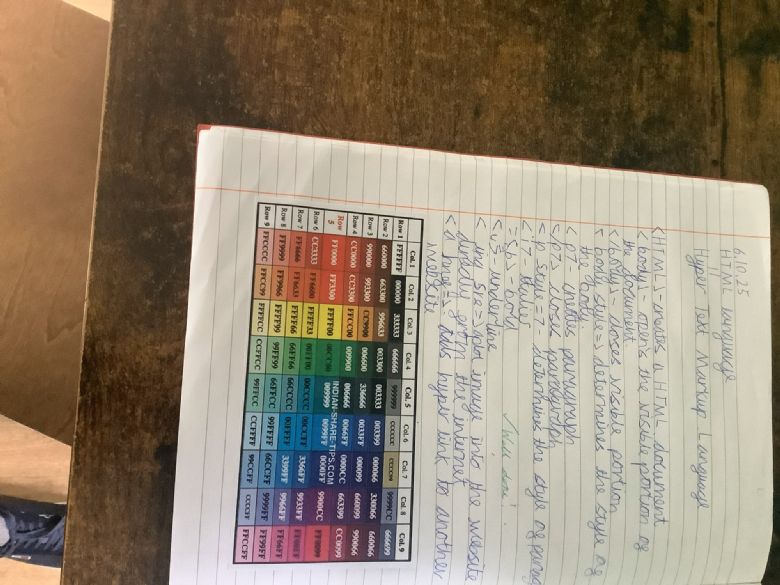 6.10.25
HTML Language
Hyper Text Markup Language
<HTML> - creates a HTML document
<body> - opens the visible portion of
the document
</body> - closes visible portion
<body style=> determines the style of
the body.
<p> - initites paragraph
</p> close paragraph
<p style=> - determines the style of
<i> italics
<b> - bold
<u> underline
<img src=> put image into the website
directly from the internet
<a href=> adds hyper link to another
website
Col.1 Col.2 Col.3 Col.4 Col.5 Col.6 Col.7 Col.8 Col.9
Row 1 FFFFFF 000000 333333 666666 999999 CCCCCC CCCC99 9999CC 666699
Row 2 660000 663300 996633 003300 003333 003399 000066 330066 660066
Row 3 990000 993300 CC9900 006600 336666 0033FF 000099 660099 990066
Row 4 CC0000 CC3300 FFCC00 009900 006666 0066FF 0000CC 663399 CC0099
Row 5 FF0000 FF3300 FFFF00 00CC00 009999 0099FF 0000FF 9900CC FF0099
Row 6 CC3333 FF6600 FFFF33 00FF00 00CCCC 00CCFF 3366FF 9933FF FF00FF
Row 7 FF6666 FF6633 FFFF66 66FF66 66CCCC 00FFFF 3399FF 9966FF FF66FF
Row 8 FF9999 FF9966 FFFF99 99FF99 66FFCC 99FFFF 66CCFF 9999FF FF99FF
Row 9 FFCCCC FFCC99 FFFFCC CCFFCC 99FFCC CCFFFF 99CCFF CCCCFF FFCCFF
INDIAN-SHARE-TIPS.COM